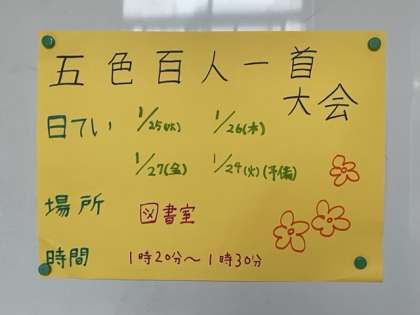 五色百人一首
大会
日てい 1/25(水) 1/26(木)
1/27(金) 1/24(火)(予備)
場所 図書室
時間 1時20分～1時30分